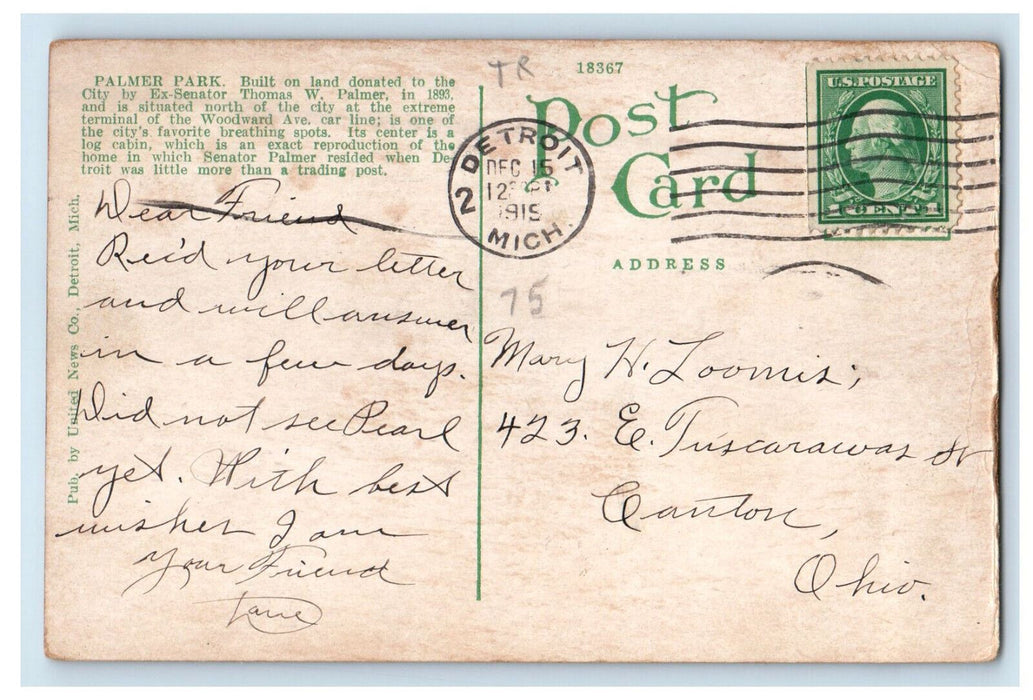 PALMER PARK. Built on land donated to the
City by Ex-Senator Thomas W. Palmer, in 1893,
and is situated north of the city at the extreme
terminal of the Woodward Ave. car line; is one of
the city's favorite breathing spots. Its center is a
log cabin, which is an exact reproduction of the
home in which Senator Palmer resided when De-
troit was little more than a trading post.
Pub. by United News Co., Detroit, Mich.
Dear Friend
Rec'd your letter
and will answer
in a few days.
Did not see Pearl
yet. With best
wishes I am
Your Friend
TR
18367
Post
Card
DETROIT
2
DEC 15
12
1915
MICH.
U.S. POSTAGE
1 CENT 1
ADDRESS
75
Mary H. Loomis;
423. E. Tuscarawas St
Canton,
Ohio.